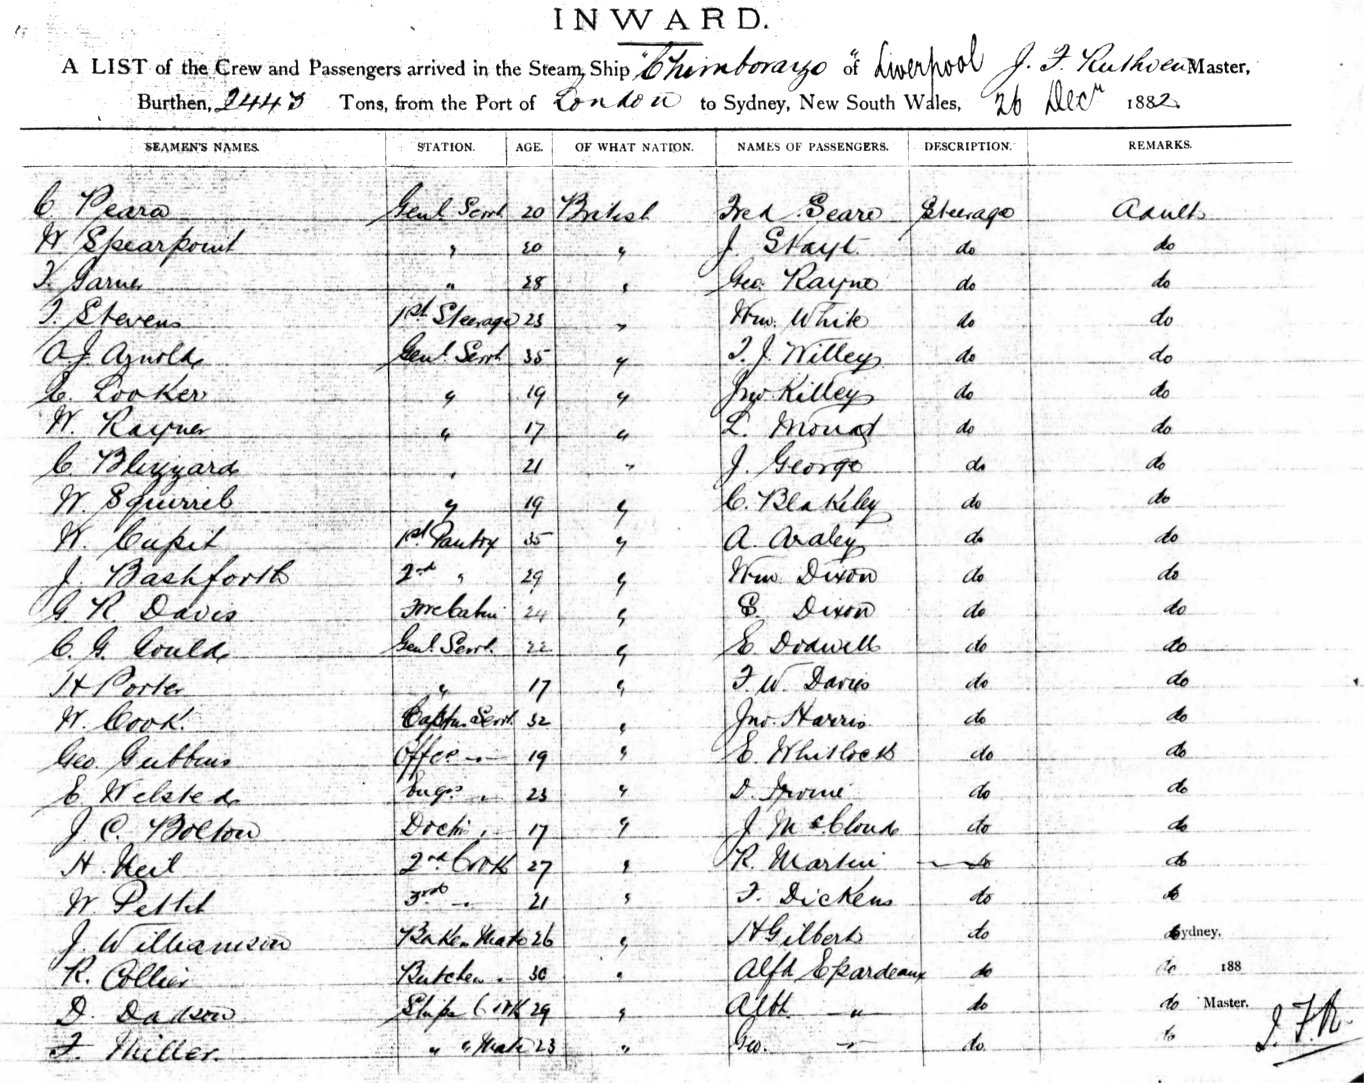 INWARD.
A LIST of the Crew and Passengers arrived in the Steam Ship "Chimborazo" of Liverpool J. F. Ruthven Master,
Burthen, 2443 Tons, from the Port of London to Sydney, New South Wales, 26 Decr 1882.
SEAMEN'S NAMES. STATION. AGE. OF WHAT NATION. NAMES OF PASSENGERS. DESCRIPTION. REMARKS.
C Peara Genl Servt 20 British Fred Seare Steerage Adult
W Spearpoint " 20 " J. Stayt do do
T. Garner " 28 " Geo. Rayne do do
T. Stevens 1st Steerage 23 " Wm. White do do
A J Arnold Genl Servt 35 " T. J. Willey do do
C. Looker " 19 " Jno Killey do do
W. Rayner " 17 " L. Mouat do do
C. Blizzard " 21 " J. George do do
W. Squirrel " 19 " C. Blakeley do do
W. Cupit 1st Pantry 35 " A do do
J. Bashforth 2nd " 29 " Wm Dixon do do
G R Davis Forecabin 24 " S Dixon do do
C. G. Gould Genl Servt. 22 " E Dodwell do do
H Porter " 17 " F. W. Davis do do
W. Cook Captns Servt. 32 " Jno. Harris do do
Geo Gubbins Offce " 19 " E. Whitlock do do
E Welsted Engs " 23 " D. Irvine do do
J. C. Bolton Doctr " 17 " J McCloud do do
H. Neil 2nd Cook 27 " R. Martin do do
W Pettit 3rd " 21 " F. Dickens do do
J. Williamson Baker Mate 26 " H Gilbert do do Sydney,
R. Collier Butcher 30 " Alfd Epardeaux do do 188
D. Dadson Ships Cook 29 " Albt " do do Master.
F. Miller " " Mate 23 " Geo. " do. do J. F. R.